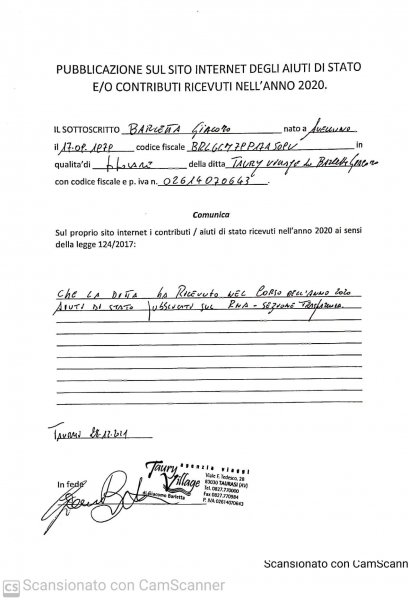 PUBBLICAZIONE SUL SITO INTERNET DEGLI AIUTI DI STATO
E/O CONTRIBUTI RICEVUTI NELL'ANNO 2020.
IL SOTTOSCRITTO BARLETTA GIACOMO nato a AVELLINO
il codice fiscale in
qualita'di della ditta TAURY VILLAGE di Barletta Giacomo
con codice fiscale e p. iva n. 02614070643.
Comunica
Sul proprio sito internet i contributi / aiuti di stato ricevuti nell'anno 2020 ai sensi
della legge 124/2017:
CHE LA DITTA HA RICEVUTO NEL CORSO DELL'ANNO 2020
AIUTI DI STATO PUBBLICATI SUL RNA - SEZIONE TRASPARENZA
TAURASI 28.12.2021
In fede
agenzia viaggi
Taury Village
di Giacomo Barletta
Viale F. Tedesco, 28
83030 TAURASI (Av)
Tel. 0827.770000
Fax 0827.770984
P. IVA 02614070643
Scansionato con CamScann
CS Scansionato con CamScanner